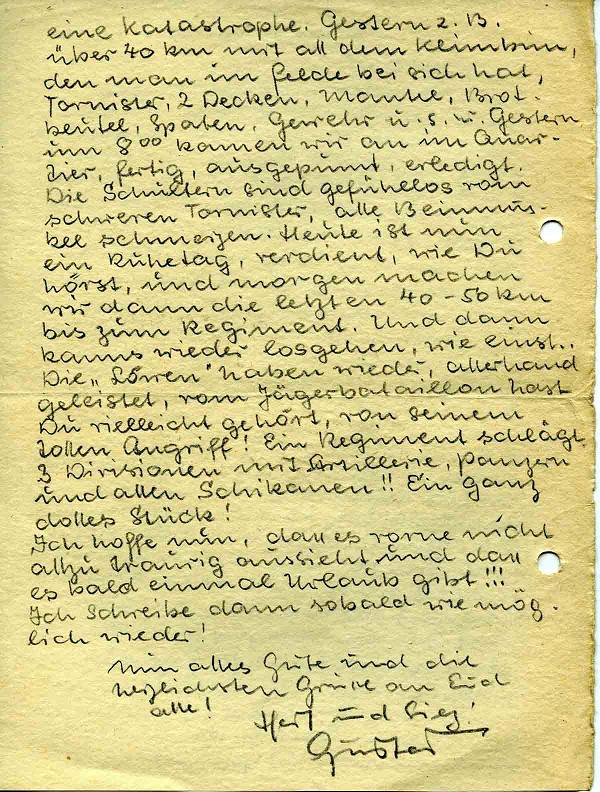 eine Katastrophe. Gestern z. B.
über 40 km mit all dem Klimbim,
den man im Felde bei sich hat,
Tornister, 2 Decken, Mantel, Brot-
beutel, Spaten, Gewehr u. s. w. Gestern
um 8 00 kamen wir an im Quar-
tier, fertig, ausgepumt, erledigt.
Die Schultern sind gefühllos vom
schweren Tornister, alle Beinmus-
kel schmerzen. Heute ist nun
ein Ruhetag, verdient, wie Du
hörst, und morgen machen
wir dann die letzten 40-50 km
bis zum Regiment. Und dann
kanns wieder losgehen, wie einst..
Die „Löwen" haben wieder, allerhand
geleistet, vom Jägerbataillon hast
Du vielleicht gehört, von seinem
tollen Angriff! Ein Regiment schlägt
3 Divisionen mit Artillerie, Panzern
und allen Schikanen!! Ein ganz
dolles Stück!
Ich hoffe nun, dass es vorne nicht
allzu traurig aussieht und dass
es bald einmal Urlaub gibt!!!
Ich Schreibe dann sobald wie mög-
lich wieder!
Nun alles Gute und die
herzlichsten Grüsse an Euch
alle!
und Sieg!
Gustav